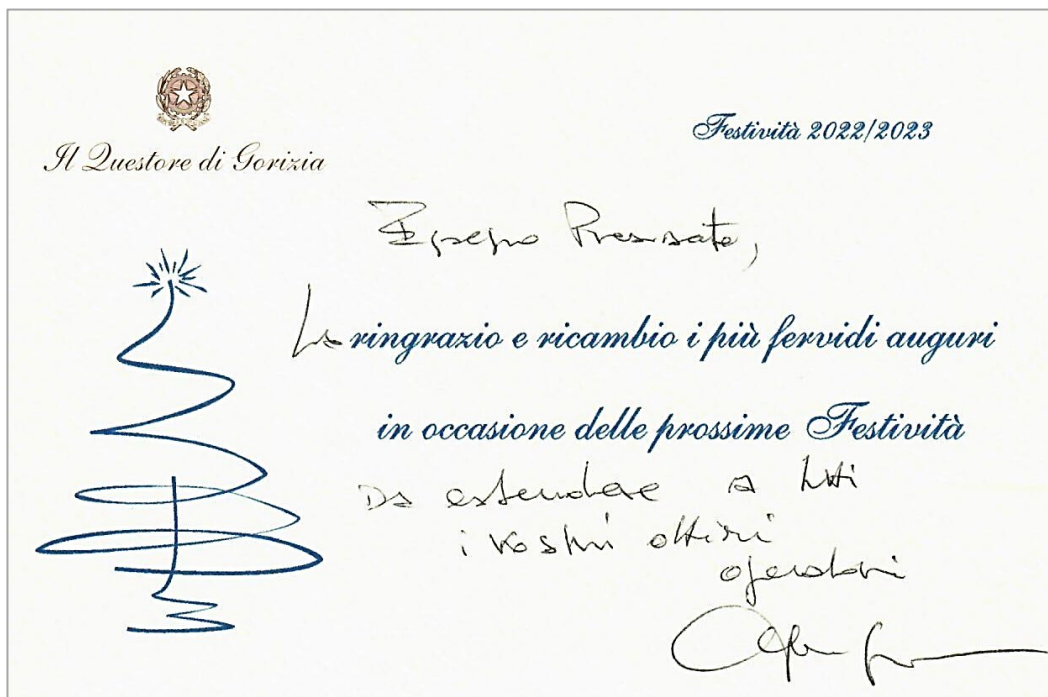 Il Questore di Gorizia
Festività 2022/2023
Egregio Presidente,
La ringrazio e ricambio i più fervidi auguri
in occasione delle prossime Festività
Da estendere a tutti
i vostri ottimi
operatori